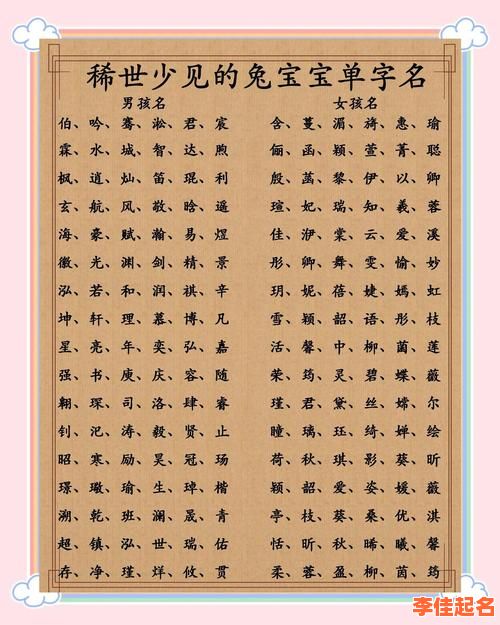 稀世少见的兔宝宝单字名
男孩名
伯、吟、骞、淞、君、宸
霖、水、城、智、达、煦
枫、逍、灿、笛、琨、利
玄、航、风、敬、晗、遥
海、豪、赋、瀚、易、煜
徽、光、渊、剑、精、景
泓、若、和、润、祺、辛
坤、轩、理、慕、博、凡
星、亮、年、奕、弘、嘉
强、书、庾、庆、容、随
翱、琛、司、洛、肆、睿
钊、汜、涛、毅、贤、止
昭、寒、励、昊、冠、玚
璟、璥、瑜、生、琸、楷
溯、乾、班、澜、晟、青
超、镇、泓、世、瑞、佑
存、净、瑾、烊、攸、贯
女孩名
含、蔓、湄、旖、惠、瑜
俪、函、颖、萱、菁、聪
殷、菡、黎、伊、以、卿
瑄、妃、瑞、知、羲、蓉
佳、伊、棠、云、爱、溪
彤、卿、舞、雯、愉、妙
玥、妮、蓓、婕、嫣、虹
雪、颖、韶、语、彤、枝
活、馨、中、柳、菌、莲
荣、筠、灵、碧、蝶、薇
瑾、君、黛、丝、嫦、尔
瞳、璃、珏、绮、婵、绘
荷、秋、琪、影、葵、昕
颖、韶、爱、姿、媛、薇
亭、枝、葵、桑、优、淇
恬、昕、秋、晞、曦、馨
柔、蓉、盈、柳、茵、筠
李佳起名